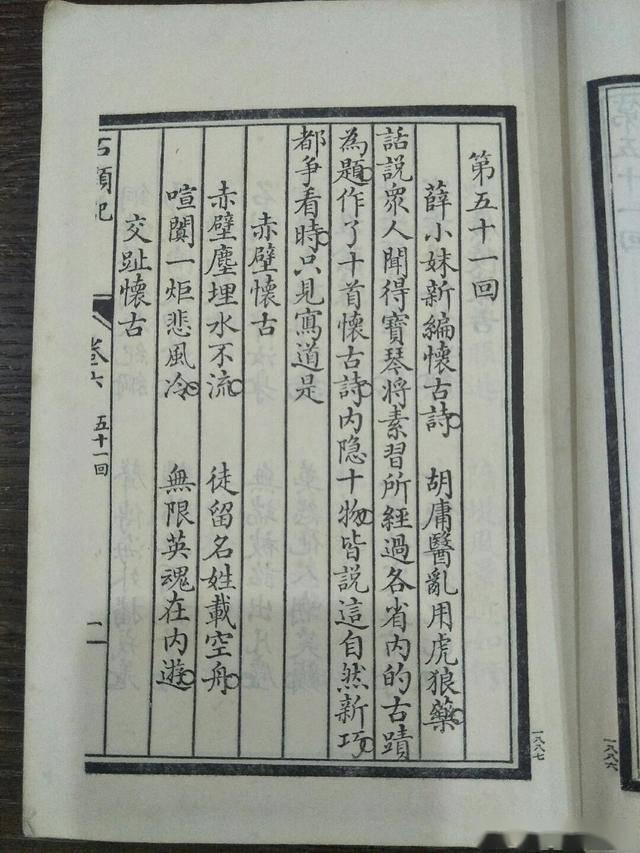 第五十一回
薛小妹新編懷古詩。　胡庸醫亂用虎狼藥。
話說眾人聞得寶琴將素習所經過各省內的古蹟
為題。作了十首懷古詩內隐十物。皆說這自然新巧。
都爭看時。只見寫道是
赤壁懷古
赤壁塵埋水不流。　徒留名姓載空舟。
喧闐一炬悲風冷。　無限英魂在內遊。
交趾懷古
石頭記
卷六
五十一回
一
一八八七
一八八六